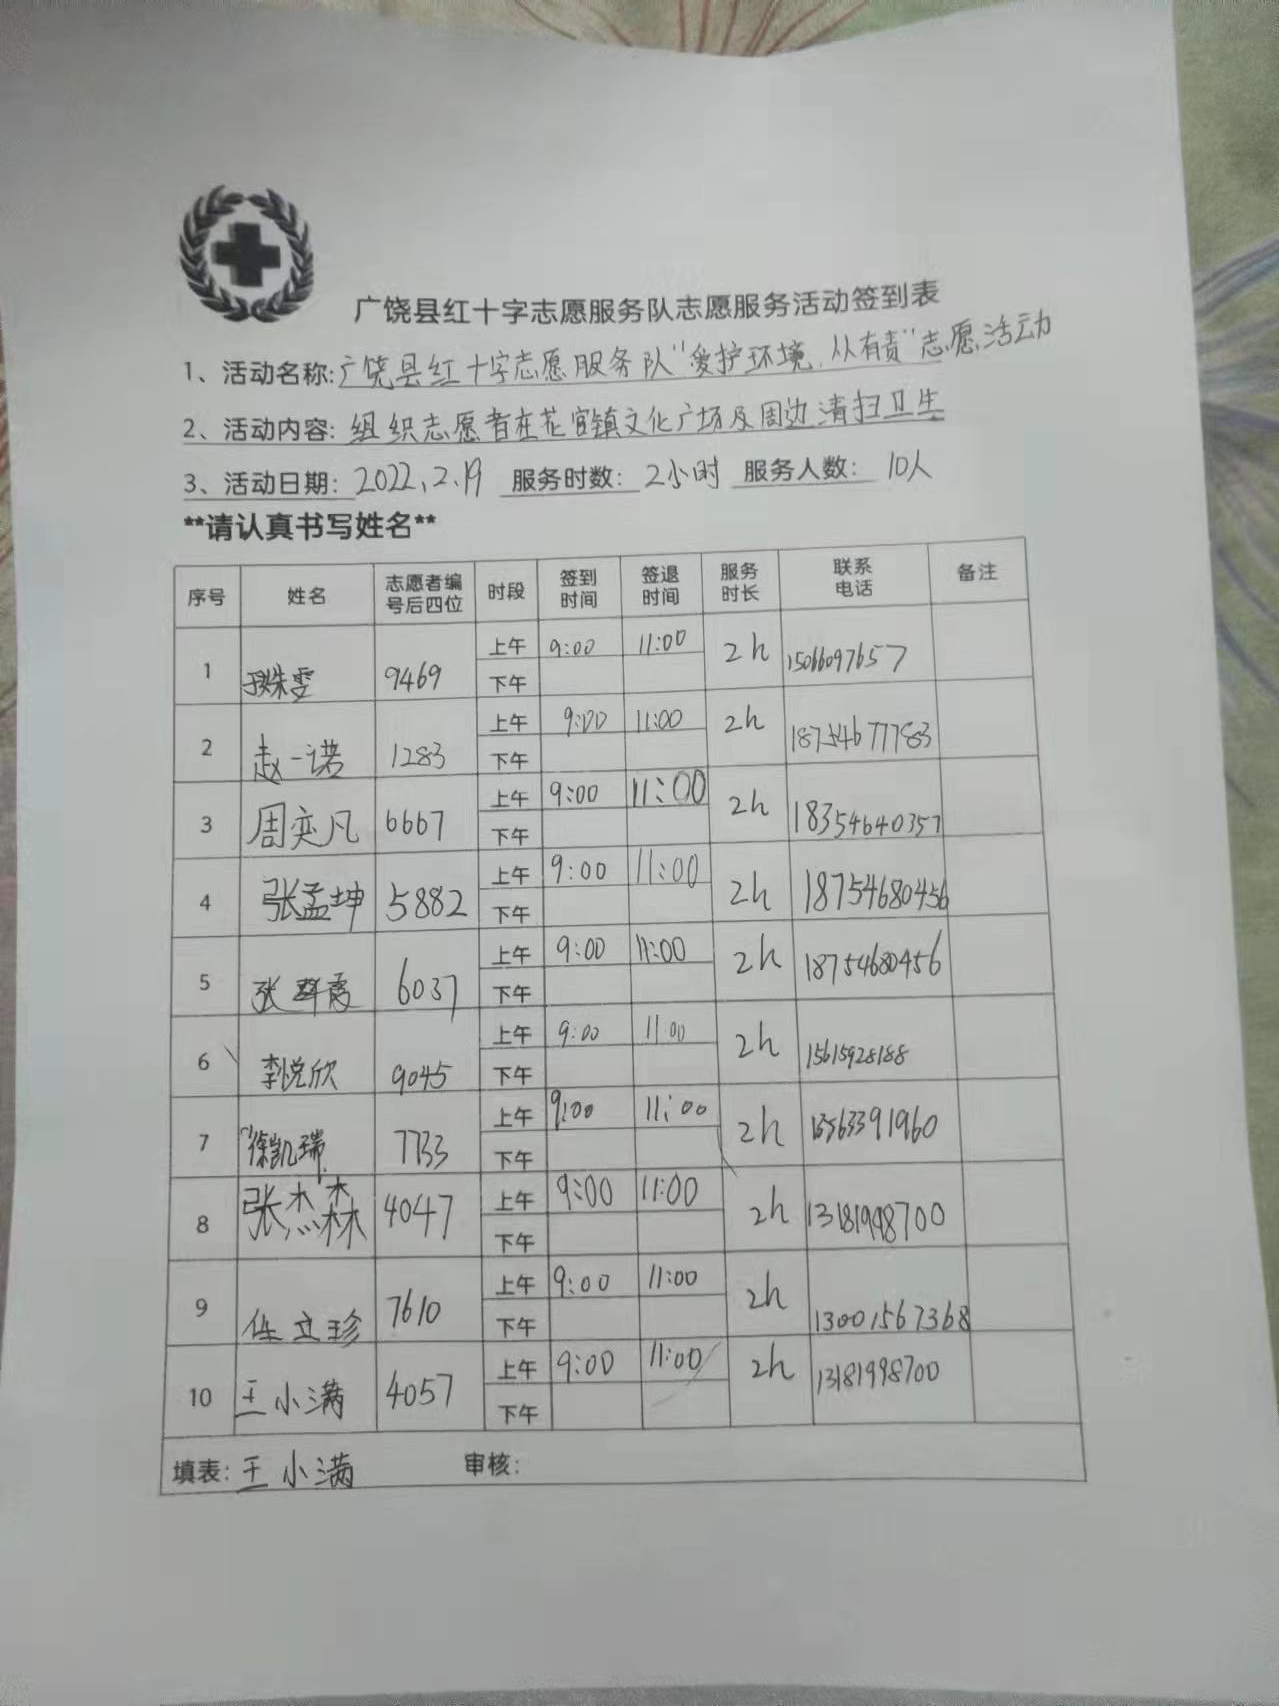 广饶县红十字志愿服务队志愿服务活动签到表
1、活动名称:广饶县红十字志愿服务队"爱护环境,从有责"志愿活动
2、活动内容:组织志愿者在花官镇文化广场及周边清扫卫生
3、活动日期:2022.2.19 服务时数:2小时 服务人数:10人
**请认真书写姓名**
序号 姓名 志愿者编号后四位 时段 签到时间 签退时间 服务时长 联系电话 备注
1 9469 上午 9:00 11:00 2h 15066097657
下午
2 赵一诺 1283 上午 9:00 11:00 2h 18754677783
下午
3 周奕凡 6667 上午 9:00 11:00 2h 18354640357
下午
4 张孟坤 5882 上午 9:00 11:00 2h 18754680456
下午
5 张群霞 6037 上午 9:00 11:00 2h 18754680456
下午
6 李悦欣 9045 上午 9:00 11:00 2h 15615928188
下午
7 徐凯瑞 7733 上午 9:00 11:00 2h 15563391960
下午
8 张杰森 4047 上午 9:00 11:00 2h 13181998700
下午
9 任立珍 7610 上午 9:00 11:00 2h 13001567368
下午
10 王小满 4057 上午 9:00 11:00 2h 13181998700
下午
填表:王小满 审核: